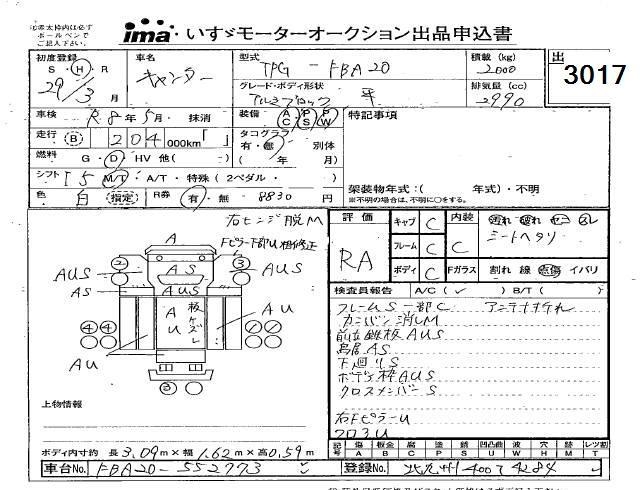 ボールペンで
ご記入下さい。
ima いすゞモーターオークション出品申込書
初度登録 S・H・R 29/3月
車名 キャンター
型式 TPG - FBA20
積載(kg) 2000
グレード・ボディ形状 アルミブロック 平
排気量(cc) 2990
出 3017
車検 R8年5月・抹消
装備 AC PS PW
特記事項
走行 (B) 204 000km「 」
タコグラフ 有・無 別体 ( 年 月)
燃料 G・D・HV 他( )
シフト I 5 M/T・A/T・特殊(2ペダル・ )
色 白 (指定) R券 有・無・8830円
架装物年式:( 年式)・不明
※不明の場合は、不明に○をする。
右ヒンジ脱M
Fピラー下部U粗修正
評価 RA
キャブ C
フレーム C
ボディ C
内装 C
シートヘタリ
Fガラス 割れ 線 点傷 イバリ
A
② ③
AUS AS AUS
AS AUS
A U 板ケズレ A U
④④
AU
③
検査員報告 A/C(✓) B/T( )
フレームS一部C アンテナすれ
カンバン消しM
前立鉄板AUS
鳥居AS
下廻りS
ボデー枠AUS
クロスメンバーS
右FピラーU
クロ3U
上物情報
記号 傷 A 板金 B 腐 C 塗 P 錆 S 凹凸曲 U 波 W 穴 H 跡 M レツ割 T
ボディ内寸約 長3.09m×幅1.62m×高0.59m
車台No. FBA20-552773
登録No. 北九州 400て4284